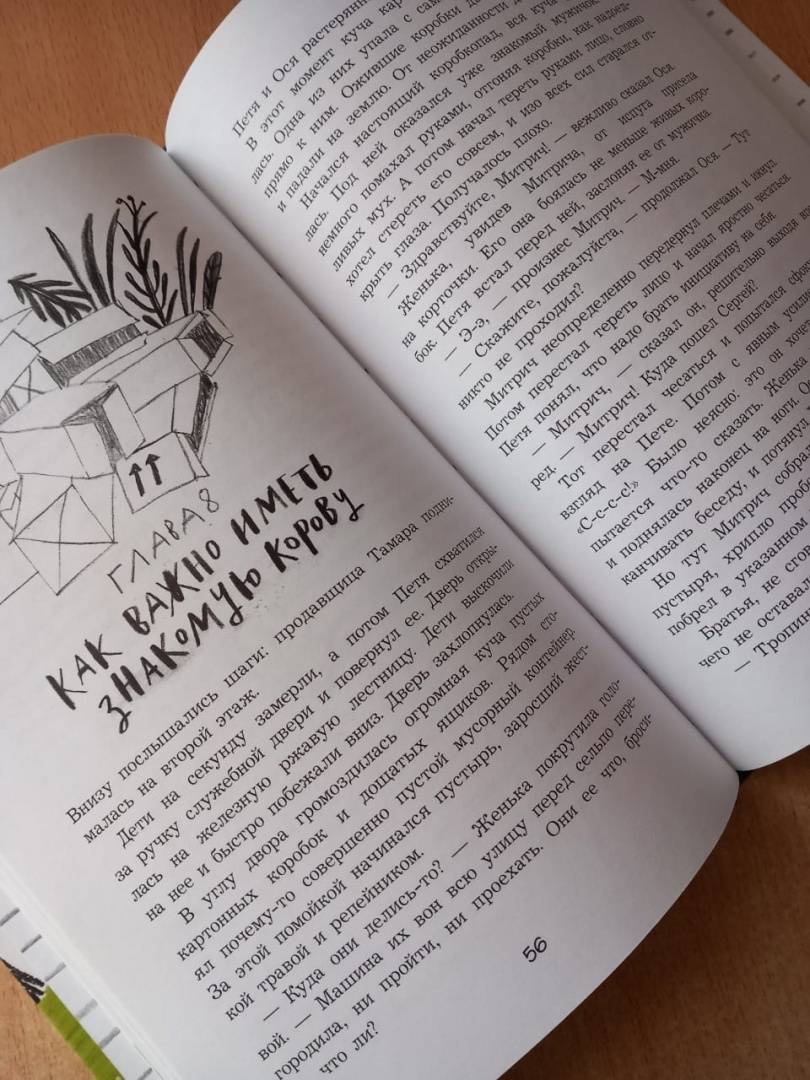 ГЛАВА 8
КАК ВАЖНО ИМЕТЬ
ЗНАКОМУЮ КОРОВУ
Внизу послышались шаги: продавщица Тамара подни-
малась на второй этаж.
Дети на секунду замерли, а потом Петя схватился
за ручку служебной двери и повернул ее. Дверь откры-
лась на железную ржавую лестницу. Дети выскочили
на нее и быстро побежали вниз. Дверь захлопнулась.
В углу двора громоздилась огромная куча пустых
картонных коробок и дощатых ящиков. Рядом сто-
ял почему-то совершенно пустой мусорный контейнер.
За этой помойкой начинался пустырь, заросший жест-
кой травой и репейником.
— Куда они делись-то? — Женька покрутила голо-
вой. — Машина их вон всю улицу перед сельпо пере-
городила, ни пройти, ни проехать. Они ее что, броси-
что ли?
56
Петя и Ося растерянн
В этот момент куча кар
лась. Одна из них упала с сам
прямо к ним. Ожившие коробки д
и падали на землю. От неожиданности д
Начался настоящий коробкопад, вся куча
лась. Под ней оказался уже знакомый мужичок
немного помахал руками, отгоняя коробки, как надоед-
ливых мух. А потом начал тереть руками лицо, словно
хотел стереть его совсем, и изо всех сил старался от-
крыть глаза. Получалось плохо.
— Здравствуйте, Митрич! — вежливо сказал Ося.
Женька, увидев Митрича, от испуга присела
на корточки. Его она боялась не меньше живых коро-
бок. Петя встал перед ней, заслоняя ее от мужичка.
— Э-э, — произнес Митрич. — М-мня.
— Скажите, пожалуйста, — продолжал Ося. — Тут
никто не проходил?
Митрич неопределенно передернул плечами и икнул.
Потом перестал тереть лицо и начал яростно чесаться.
Петя понял, что надо брать инициативу на себя.
— Митрич, — сказал он, решительно выходя
ред. — Митрич! Куда пошел Сергей?
Тот перестал чесаться и попытался сфок
взгляд на Пете. Потом с явным усил
«С-с-с-с!» Было неясно: это он хоч
пытается что-то сказать. Женьк
и поднялась наконец на ноги. О
канчивать беседу, и потянул
Но тут Митрич собрал
пустыря, хрипло пробе
побрел в указанном
Братья, не сго
чего не остава
— Тропин